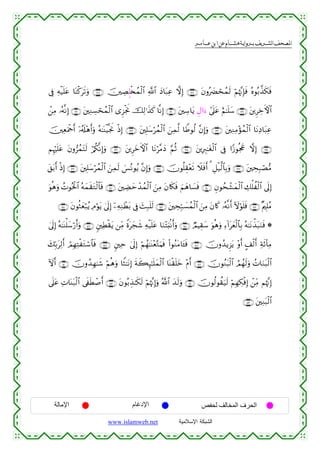 المصحف الشريف برواية هشام عن ابن عامر
فَكَذَّبُوهُ فَإِنَّهُمْ لَمُحْضَرُونَ ١٢٧ إِلَّا عِبَادَ ٱللَّهِ ٱلْمُخْلَصِينَ ١٢٨ وَتَرَكْنَا عَلَيْهِ فِى
ٱلْآخِرِينَ ١٢٩ سَلَٰمٌ عَلَىٰٓ ءَالِ يَاسِينَ ١٣٠ إِنَّا كَذَٰلِكَ نَجْزِى ٱلْمُحْسِنِينَ ١٣١ إِنَّهُۥ مِنْ
عِبَادِنَا ٱلْمُؤْمِنِينَ ١٣٢ وَإِنَّ لُوطًا لَّمِنَ ٱلْمُرْسَلِينَ ١٣٣ إِذْ نَجَّيْنَٰهُ وَأَهْلَهُۥٓ أَجْمَعِينَ
١٣٤ إِلَّا عَجُوزًا فِى ٱلْغَٰبِرِينَ ١٣٥ ثُمَّ دَمَّرْنَا ٱلْآخَرِينَ ١٣٦ وَإِنَّكُمْ لَتَمُرُّونَ عَلَيْهِم
مُّصْبِحِينَ ١٣٧ وَبِٱلَّيْلِ أَفَلَا تَعْقِلُونَ ١٣٨ وَإِنَّ يُونُسَ لَمِنَ ٱلْمُرْسَلِينَ ١٣٩ إِذْ أَبَقَ
إِلَى ٱلْفُلْكِ ٱلْمَشْحُونِ ١٤٠ فَسَاهَمَ فَكَانَ مِنَ ٱلْمُدْحَضِينَ ١٤١ فَٱلْتَقَمَهُ ٱلْحُوتُ وَهُوَ
مُلِيمٌ ١٤٢ فَلَوْلَآ أَنَّهُۥ كَانَ مِنَ ٱلْمُسَبِّحِينَ ١٤٣ لَلَبِثَ فِى بَطْنِهِۦٓ إِلَىٰ يَوْمِ يُبْعَثُونَ ١٤٤
* فَنَبَذْنَٰهُ بِٱلْعَرَآءِ وَهُوَ سَقِيمٌ ١٤٥ وَأَنۢبَتْنَا عَلَيْهِ شَجَرَةً مِّن يَقْطِينٍ ١٤٦ وَأَرْسَلْنَٰهُ إِلَىٰ
مِاْئَةِ أَلْفٍ أَوْ يَزِيدُونَ ١٤٧ فَـَٔامَنُوا۟ فَمَتَّعْنَٰهُمْ إِلَىٰ حِينٍ ١٤٨ فَٱسْتَفْتِهِمْ أَلِرَبِّكَ
ٱلْبَنَاتُ وَلَهُمُ ٱلْبَنُونَ ١٤٩ أَمْ خَلَقْنَا ٱلْمَلَٰٓئِكَةَ إِنَٰثًا وَهُمْ شَٰهِدُونَ ١٥٠ أَلَآ
إِنَّهُم مِّنْ إِفْكِهِمْ لَيَقُولُونَ ١٥١ وَلَدَ ٱللَّهُ وَإِنَّهُمْ لَكَٰذِبُونَ ١٥٢ أَصْطَفَى ٱلْبَنَاتِ عَلَى
ٱلْبَنِينَ ١٥٣
الحرف المخالف لحفص الإدغام الإمالة
الشبكة الإسلامية www.islamweb.net